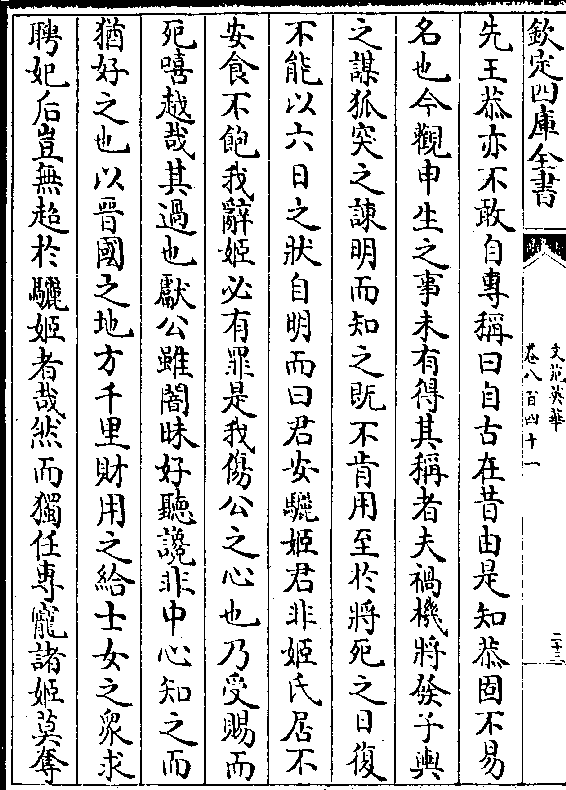 欽定四庫全書
文苑英華
卷八百四十一
二十三
先王恭亦不敢自專稱曰自古在昔由是知恭固不易
名也今觀申生之事未有得其稱者夫禍機將發子輿
之謀狐突之諫明而知之既不肯用至於將死之日復
不能以六日之狀自明而曰君安驪姬君非姬氏居不
安食不飽我辭姬必有罪是我傷公之心也乃受賜而
死嘻越哉其過也獻公雖闇昧好聽讒非中心知之而
猶好之也以晉國之地方千里財用之給士女之眾求
聘妃后豈無超於驪姬者哉然而獨任專寵諸姬莫奪